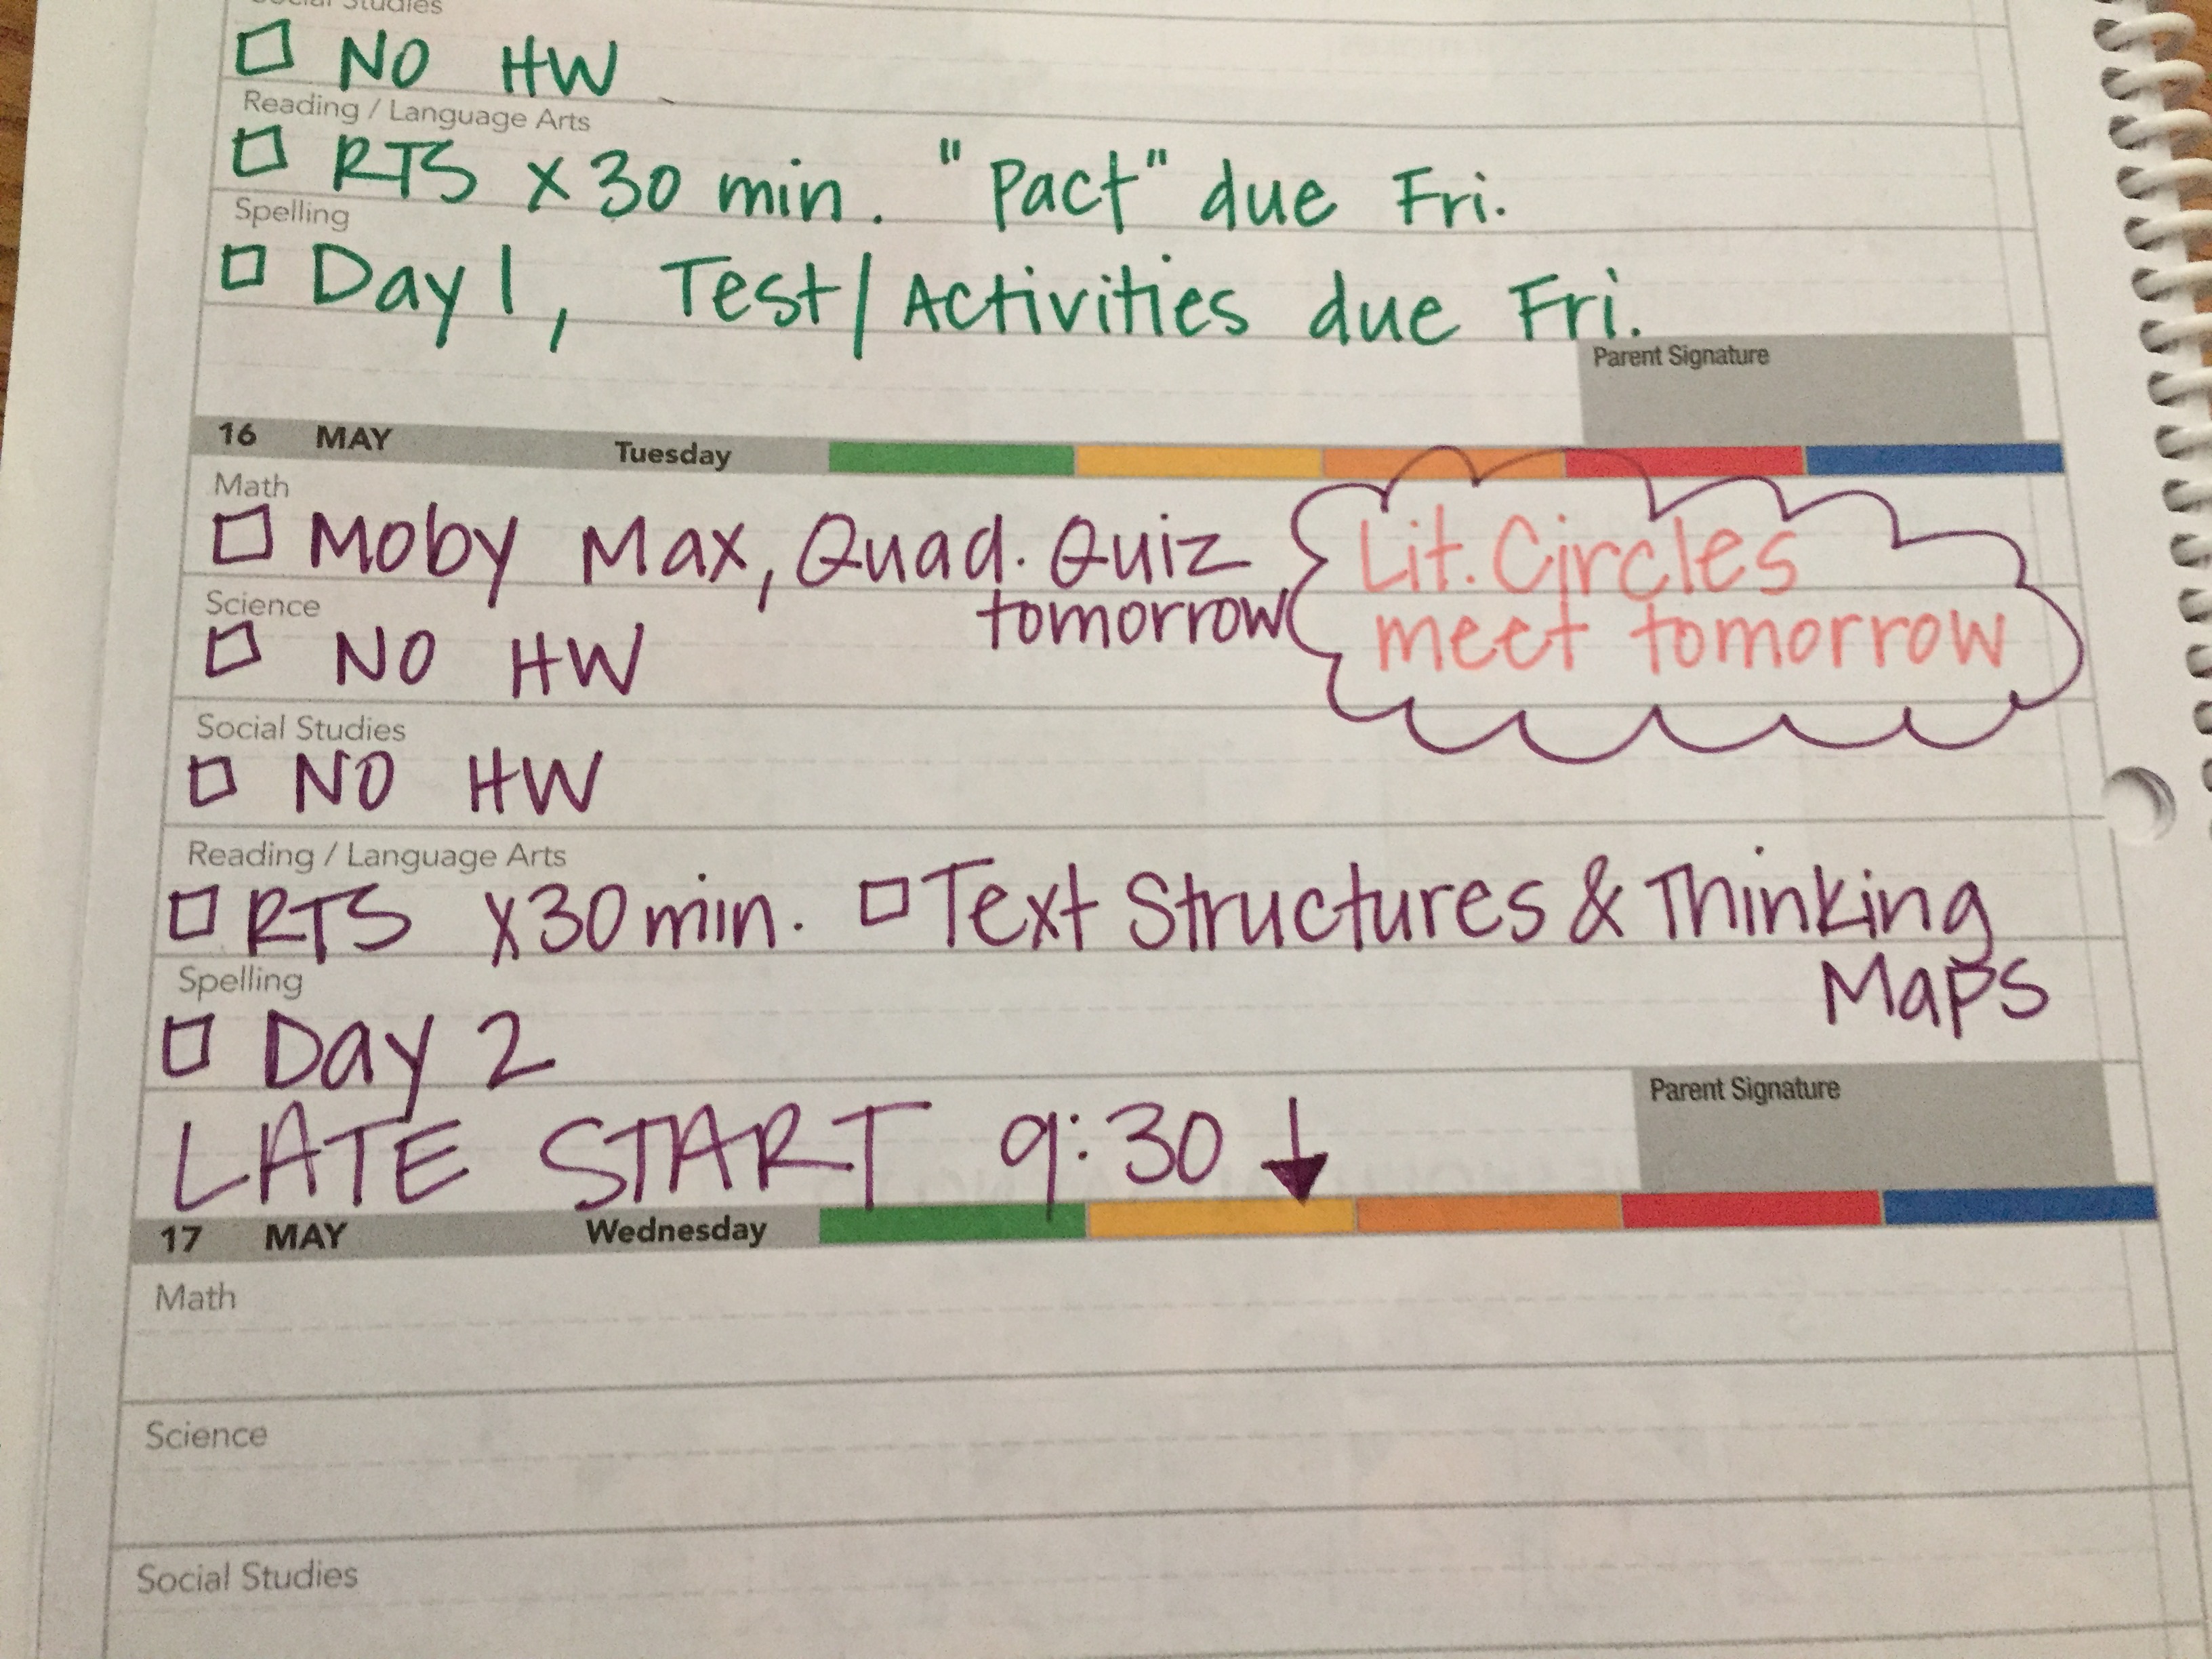 Social Studies
□ NO HW
Reading / Language Arts
□ RTS x 30 min. "Pact" due Fri.
Spelling
□ Day 1, Test/Activities due Fri.
Parent Signature
16 MAY Tuesday
Math
□ Moby Max, Quad. Quiz
tomorrow
Lit. Circles
meet tomorrow
Science
□ NO HW
Social Studies
□ NO HW
Reading / Language Arts
□ RTS x30 min. □ Text Structures & Thinking
Maps
Spelling
□ Day 2
Parent Signature
LATE START 9:30 ↓
17 MAY Wednesday
Math
Science
Social Studies